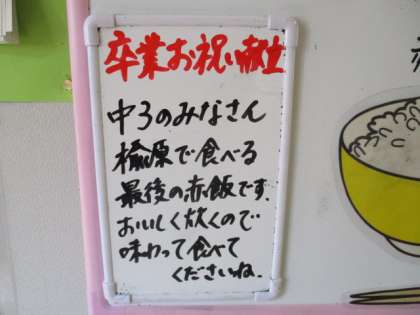 卒業お祝い献立
中3のみなさん
檮原で食べる
最後の赤飯です。
おいしく炊くので
味わって食べて
くださいね。